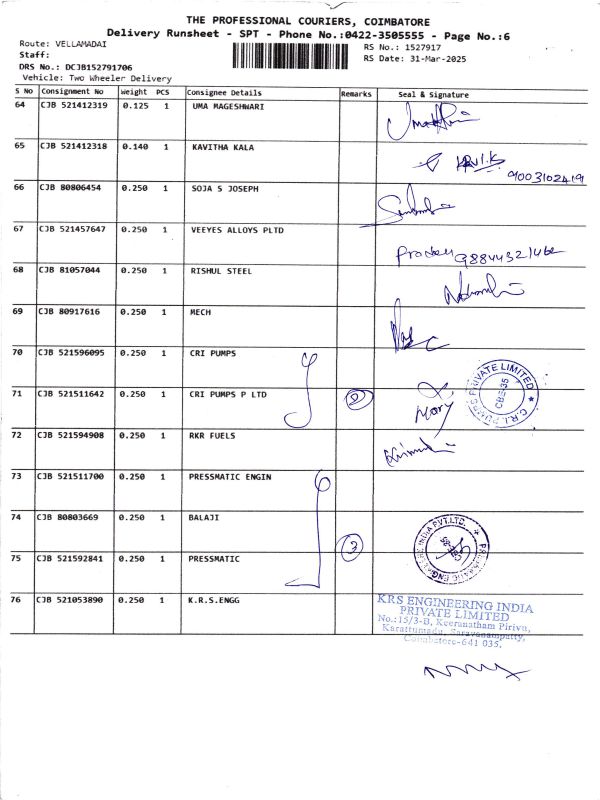 THE PROFESSIONAL COURIERS, COIMBATORE
Delivery Runsheet - SPT - Phone No.:0422-3505555 - Page No.:6
Route: VELLAMADAI RS No.: 1527917
Staff: RS Date: 31-Mar-2025
DRS No.: DCJB152791706
Vehicle: Two Wheeler Delivery
S No Consignment No Weight PCS Consignee Details Remarks Seal & Signature
64 CJB 521412319 0.125 1 UMA MAGESHWARI
65 CJB 521412318 0.140 1 KAVITHA KALA
9003102419
66 CJB 80806454 0.250 1 SOJA S JOSEPH
67 CJB 521457647 0.250 1 VEEYES ALLOYS PLTD
68 CJB 81057044 0.250 1 RISHUL STEEL
69 CJB 80917616 0.250 1 MECH
70 CJB 521596095 0.250 1 CRI PUMPS
71 CJB 521511642 0.250 1 CRI PUMPS P LTD 2 Mary
C.R.I. PUMPS PRIVATE LIMITED
CBE-35
72 CJB 521594908 0.250 1 RKR FUELS
73 CJB 521511700 0.250 1 PRESSMATIC ENGIN
74 CJB 80803669 0.250 1 BALAJI
3
75 CJB 521592841 0.250 1 PRESSMATIC
76 CJB 521053890 0.250 1 K.R.S.ENGG
KRS ENGINEERING INDIA
PRIVATE LIMITED
No.:15/3-B, Keeranatham Pirivu,
Karattumedu, Saravanampatty,
Coimbatore-641 035.